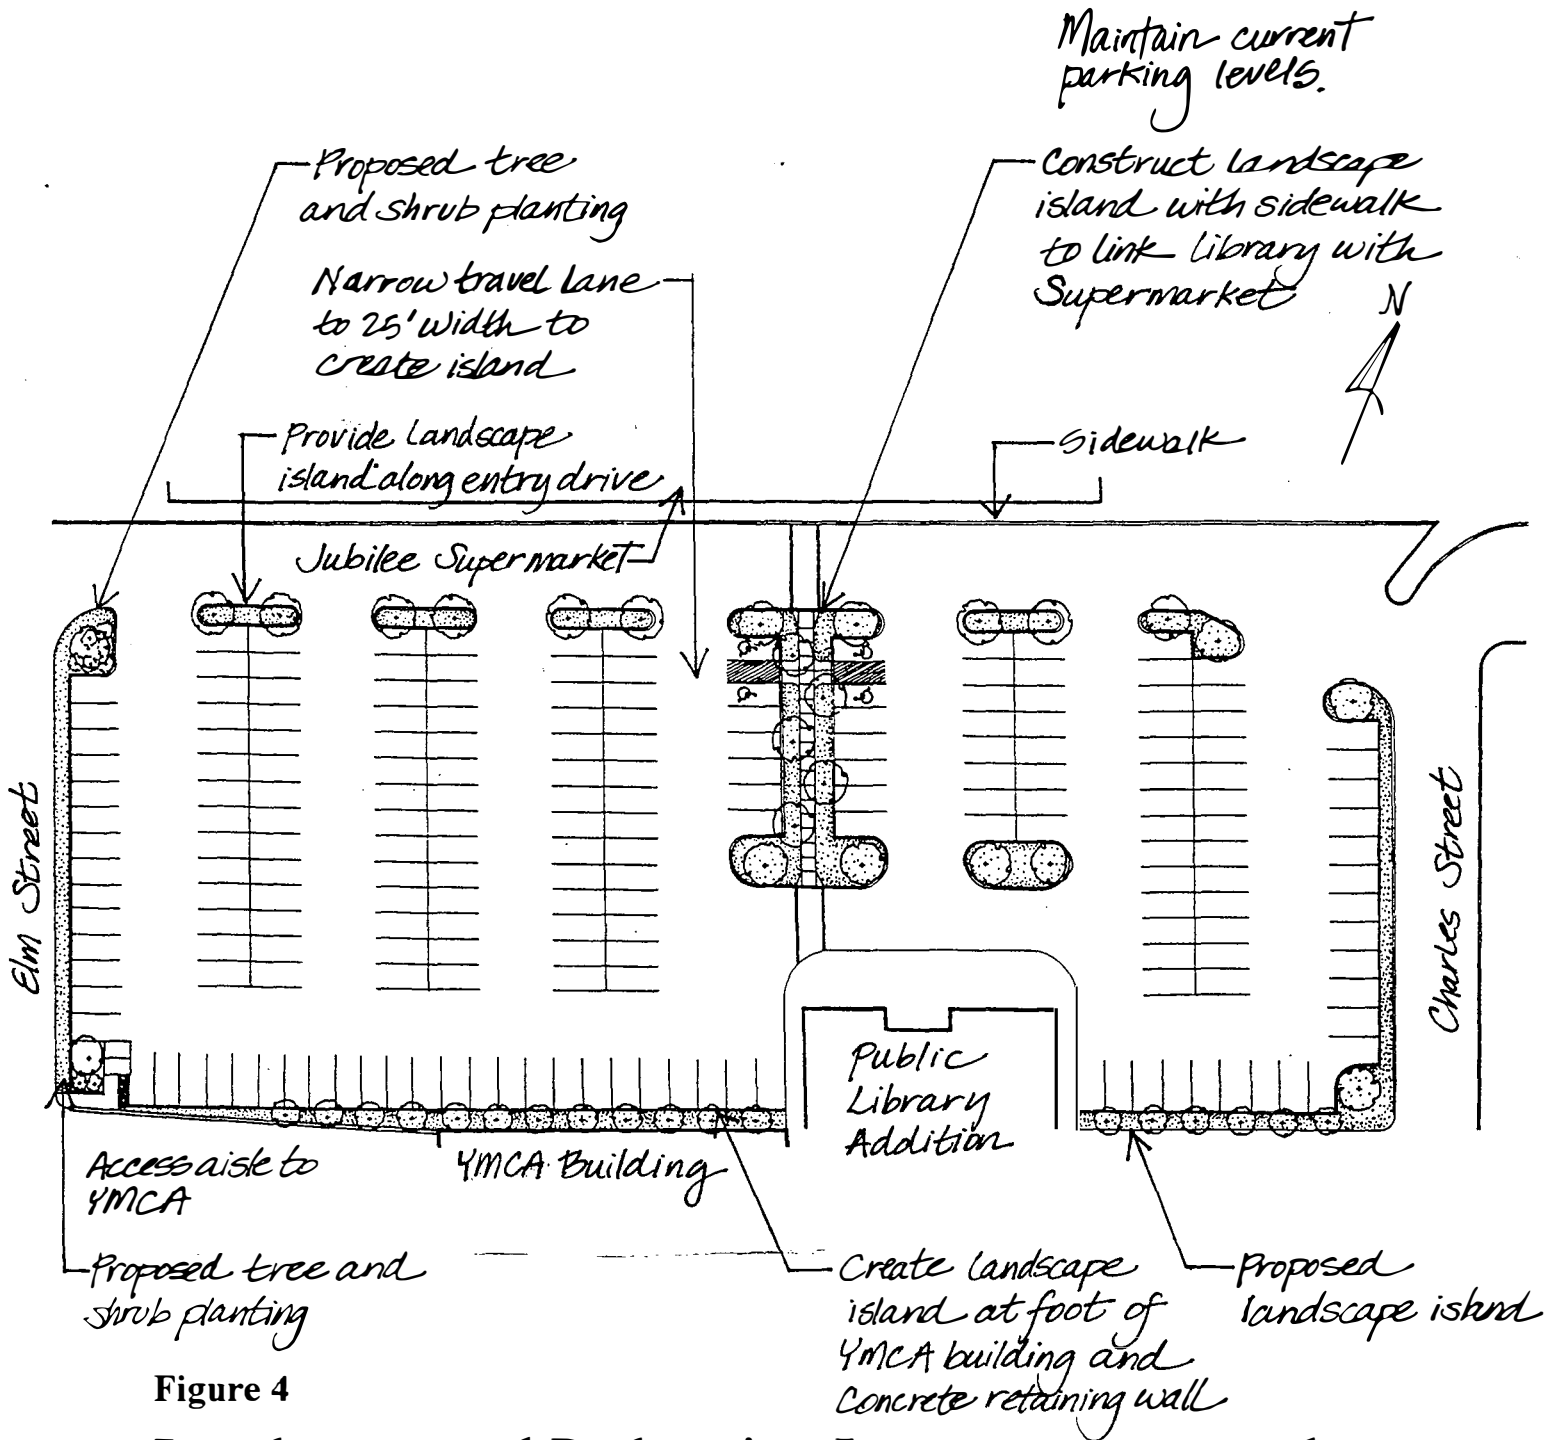 Maintain current
parking levels.
Proposed tree
and shrub planting
Construct landscape
island with sidewalk
to link library with
Supermarket
N
Narrow travel lane
to 25' width to
create island
Provide landscape
island along entry drive
Sidewalk
Jubilee Supermarket
Elm Street
Charles Street
Public
Library
Addition
Access aisle to
YMCA
YMCA Building
Proposed tree and
shrub planting
Create landscape
island at foot of
YMCA building and
concrete retaining wall
Proposed
landscape island
Figure 4